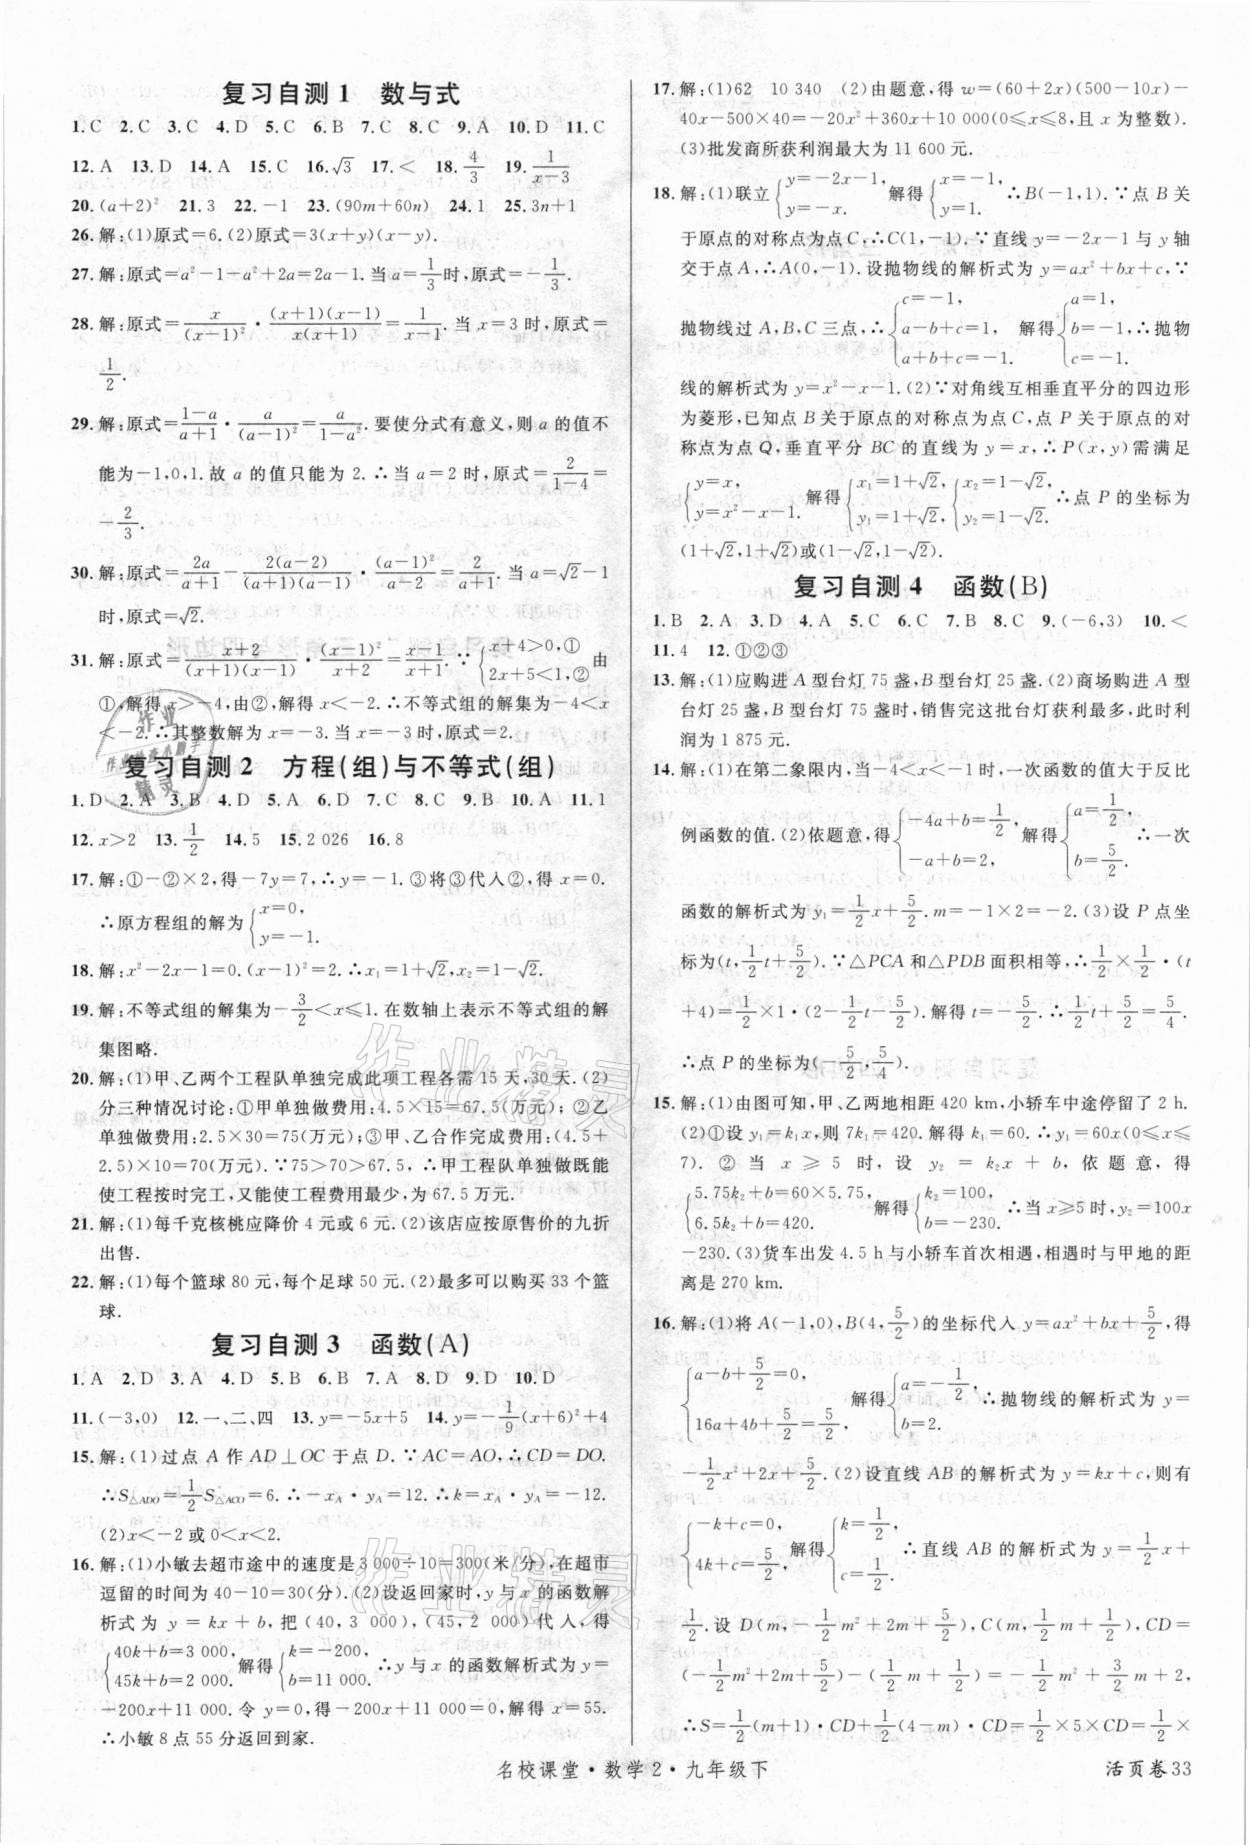 复习自测1 数与式
1.C 2.C 3.C 4.D 5.C 6.B 7.C 8.C 9.A 10.D 11.C
12.A 13.D 14.A 15.C 16.√3 17.< 18.4/3 19.1/(x-3)
20.(a+2)² 21.3 22.-1 23.(90m+60n) 24.1 25.3n+1
26.解:(1)原式=6.(2)原式=3(x+y)(x-y).
27.解:原式=a²-1-a²+2a=2a-1.当a=1/3时,原式=-1/3.
28.解:原式=x/(x-1)²·(x+1)(x-1)/x(x+1)=1/(x-1).当x=3时,原式=
1/2.
29.解:原式=(1-a)/(a+1)·a/(a-1)²=a/(1-a²).要使分式有意义,则a的值不
能为-1,0,1.故a的值只能为2.∴当a=2时,原式=2/(1-4)=
-2/3.
30.解:原式=2a/(a+1)-2(a-2)/(a+1)(a-1)·(a-1)²/(a-2)=2/(a+1).当a=√2-1
时,原式=√2.
31.解:原式=(x+2)/(x+1)(x-1)·(x-1)²/(x+2)=(x-1)/(x+1).∵{x+4>0,① 2x+5<1,②由
①,解得x>-4,由②,解得x<-2.∴不等式组的解集为-4<x
<-2.∴其整数解为x=-3.当x=-3时,原式=2.
复习自测2 方程(组)与不等式(组)
1.D 2.A 3.B 4.D 5.A 6.D 7.C 8.C 9.B 10.A 11.1
12.x>2 13.1/2 14.5 15.2 026 16.8
17.解:①-②×2,得-7y=7,∴y=-1.③将③代入②,得x=0.
∴原方程组的解为{x=0, y=-1.
18.解:x²-2x-1=0.(x-1)²=2.∴x₁=1+√2,x₂=1-√2.
19.解:不等式组的解集为-3/2<x≤1.在数轴上表示不等式组的解
集图略.
20.解:(1)甲、乙两个工程队单独完成此项工程各需15天,30天.(2)
分三种情况讨论:①甲单独做费用:4.5×15=67.5(万元);②乙
单独做费用:2.5×30=75(万元);③甲、乙合作完成费用:(4.5+
2.5)×10=70(万元).∵75>70>67.5,∴甲工程队单独做既能
使工程按时完工,又能使工程费用最少,为67.5万元.
21.解:(1)每千克核桃应降价4元或6元.(2)该店应按原售价的九折
出售.
22.解:(1)每个篮球80元,每个足球50元.(2)最多可以购买33个篮
球.
复习自测3 函数(A)
1.A 2.D 3.A 4.D 5.B 6.B 7.A 8.D 9.D 10.D
11.(-3,0) 12.一、二、四 13.y=-5x+5 14.y=-1/9(x+6)²+4
15.解:(1)过点A作AD⊥OC于点D.∵AC=AO,∴CD=DO.
∴S△ADO=1/2S△ACO=6.∴-xA·yA=12.∴k=xA·yA=-12.
(2)x<-2或0<x<2.
16.解:(1)小敏去超市途中的速度是3 000÷10=300(米/分),在超市
逗留的时间为40-10=30(分).(2)设返回家时,y与x的函数解
析式为y=kx+b,把(40,3 000),(45,2 000)代人,得
{40k+b=3 000, 45k+b=2 000.解得{k=-200, b=11 000.∴y与x的函数解析式为y=
-200x+11 000.令y=0,得-200x+11 000=0,解得x=55.
∴小敏8点55分返回到家.
17.解:(1)62 10 340 (2)由题意,得w=(60+2x)(500-10x)-
40x-500×40=-20x²+360x+10 000(0≤x≤8,且x为整数).
(3)批发商所获利润最大为11 600元.
18.解:(1)联立{y=-2x-1, y=-x.解得{x=-1, y=1.∴B(-1,1).∵点B关
于原点的对称点为点C,∴C(1,-1).∵直线y=-2x-1与y轴
交于点A,∴A(0,-1).设抛物线的解析式为y=ax²+bx+c,∵
抛物线过A,B,C三点,∴{c=-1, a-b+c=1, a+b+c=-1.解得{a=1, b=-1, c=-1.∴抛物
线的解析式为y=x²-x-1.(2)∵对角线互相垂直平分的四边形
为菱形,已知点B关于原点的对称点为点C,点P关于原点的对
称点为点Q,垂直平分BC的直线为y=x,∴P(x,y)需满足
{y=x, y=x²-x-1.解得{x₁=1+√2, y₁=1+√2,{x₂=1-√2, y₂=1-√2.∴点P的坐标为
(1+√2,1+√2)或(1-√2,1-√2).
复习自测4 函数(B)
1.B 2.A 3.D 4.A 5.C 6.C 7.B 8.C 9.(-6,3) 10.<
11.4 12.①②③
13.解:(1)应购进A型台灯75盏,B型台灯25盏.(2)商场购进A型
台灯25盏,B型台灯75盏时,销售完这批台灯获利最多,此时利
润为1 875元.
14.解:(1)在第二象限内,当-4<x<-1时,一次函数的值大于反比
例函数的值.(2)依题意,得{-4a+b=1/2, -a+b=2.解得{a=1/2, b=5/2.∴一次
函数的解析式为y₁=1/2x+5/2.m=-1×2=-2.(3)设P点坐
标为(t,1/2t+5/2).∵△PCA和△PDB面积相等,∴1/2×1/2·(t
+4)=1/2×1·(2-1/2t-5/2).解得t=-5/2.∴1/2t+5/2=5/4.
∴点P的坐标为(-5/2,5/4).
15.解:(1)由图可知,甲、乙两地相距420 km,小轿车中途停留了2 h.
(2)①设y₁=k₁x,则7k₁=420.解得k₁=60.∴y₁=60x(0≤x≤
7).②当x≥5时,设y₂=k₂x+b,依题意,得
{5.75k₂+b=60×5.75, 6.5k₂+b=420.解得{k₂=100, b=-230.∴当x≥5时,y₂=100x
-230.(3)货车出发4.5 h与小轿车首次相遇,相遇时与甲地的距
离是270 km.
16.解:(1)将A(-1,0),B(4,5/2)的坐标代人y=ax²+bx+5/2,得
{a-b+5/2=0, 16a+4b+5/2=5/2.解得{a=-1/2, b=2.∴抛物线的解析式为y=
-1/2x²+2x+5/2.(2)设直线AB的解析式为y=kx+c,则有
{-k+c=0, 4k+c=5/2.解得{k=1/2, c=1/2.∴直线AB的解析式为y=1/2x+
1/2.设D(m,-1/2m²+2m+5/2),C(m,1/2m+1/2),CD=
(-1/2m²+2m+5/2)-(1/2m+1/2)=-1/2m²+3/2m+2,
∴S=1/2(m+1)·CD+1/2(4-m)·CD=1/2×5×CD=1/2×
名校课堂·数学2·九年级下
活页卷33
作业精灵
作业精灵